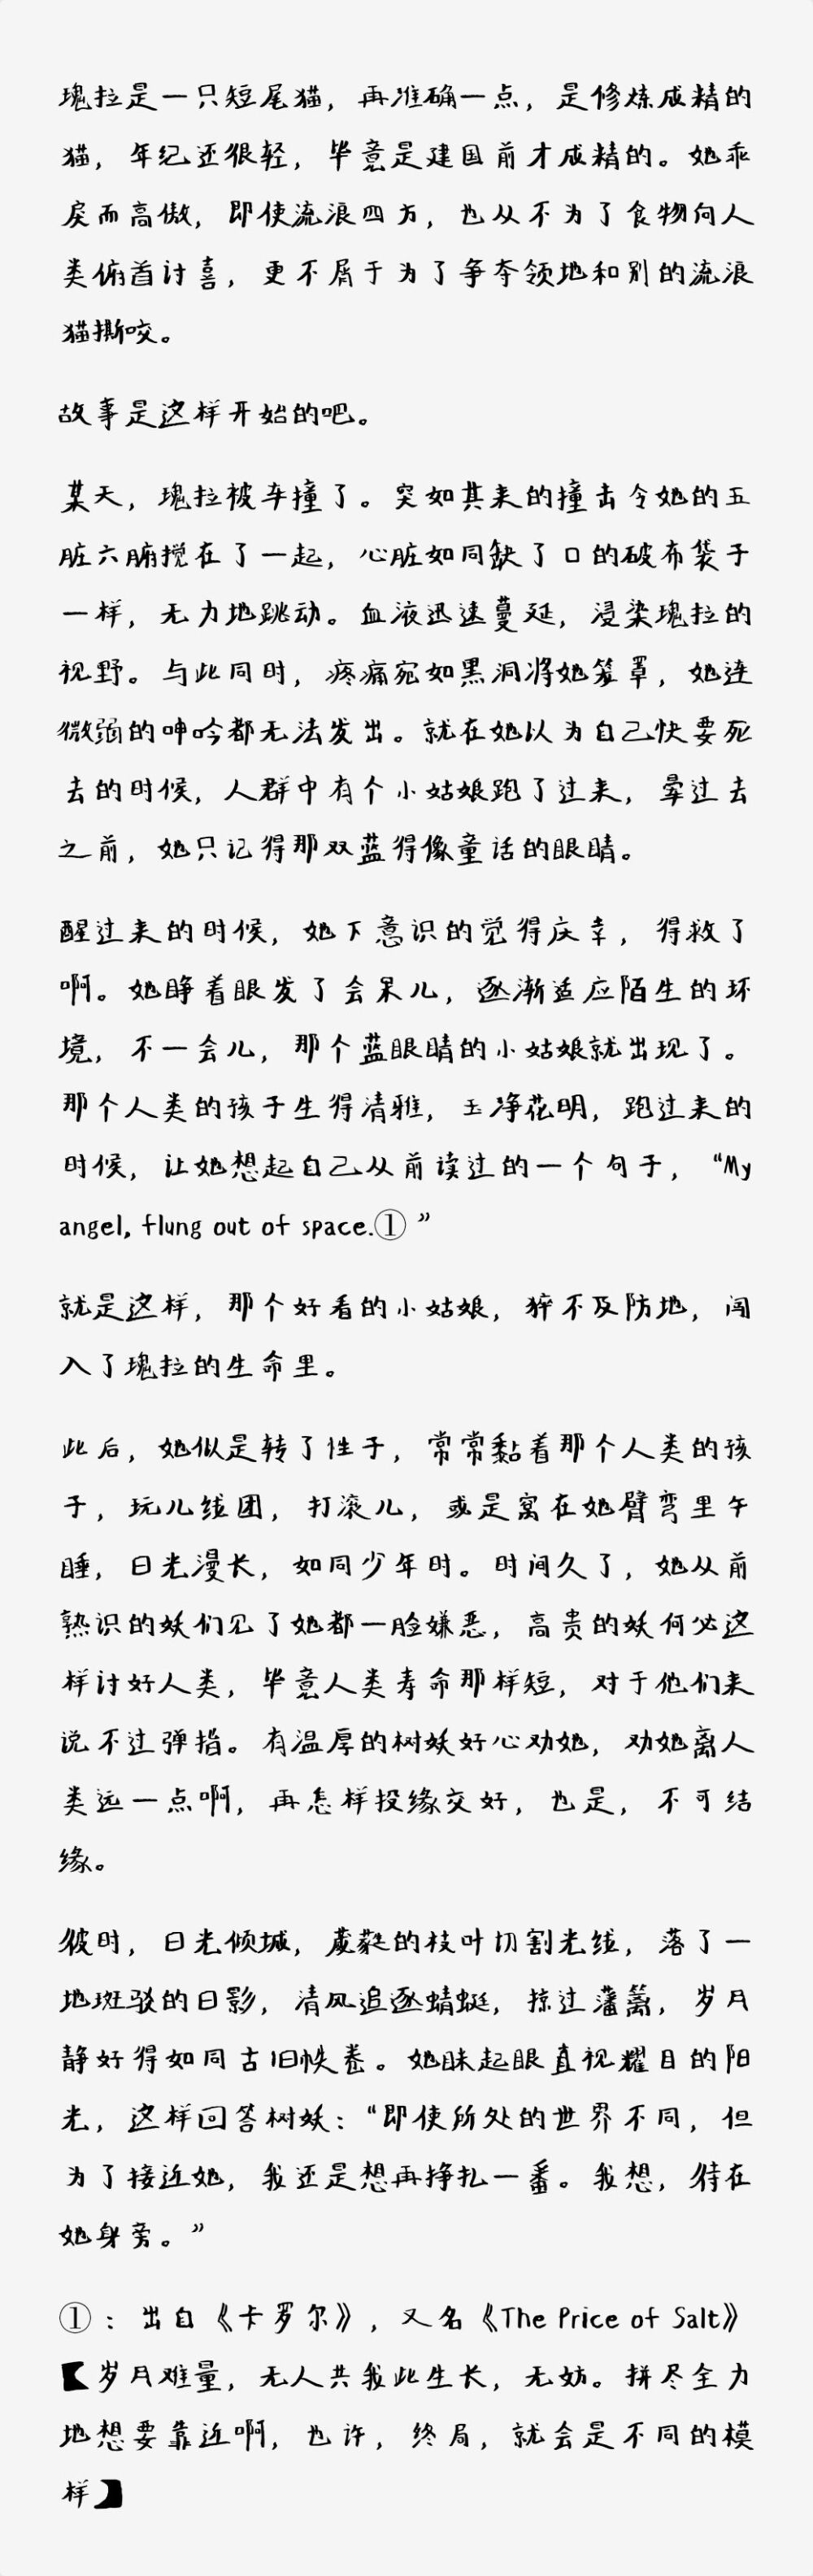 瑰拉是一只短尾猫，再准确一点，是修炼成精的
猫，年纪还很轻，毕竟是建国前才成精的。她乖
戾而高傲，即使流浪四方，也从不为了食物向人
类俯首讨喜，更不屑于为了争夺领地和别的流浪
猫撕咬。
故事是这样开始的吧。
某天，瑰拉被车撞了。突如其来的撞击令她的五
脏六腑搅在了一起，心脏如同缺了口的破布袋子
一样，无力地跳动。血液迅速蔓延，浸染瑰拉的
视野。与此同时，疼痛宛如黑洞将她笼罩，她连
微弱的呻吟都无法发出。就在她以为自己快要死
去的时候，人群中有个小姑娘跑了过来，晕过去
之前，她只记得那双蓝得像童话的眼睛。
醒过来的时候，她下意识的觉得庆幸，得救了
啊。她睁着眼发了会呆儿，逐渐适应陌生的环
境，不一会儿，那个蓝眼睛的小姑娘就出现了。
那个人类的孩子生得清雅，玉净花明，跑过来的
时候，让她想起自己从前读过的一个句子，“My
angel, flung out of space.①”
就是这样，那个好看的小姑娘，猝不及防地，闯
入了瑰拉的生命里。
此后，她似是转了性子，常常黏着那个人类的孩
子，玩儿线团，打滚儿，或是窝在她臂弯里午
睡，日光漫长，如同少年时。时间久了，她从前
熟识的妖们见了她都一脸嫌恶，高贵的妖何必这
样讨好人类，毕竟人类寿命那样短，对于他们来
说不过弹指。有温厚的树妖好心劝她，劝她离人
类远一点啊，再怎样投缘交好，也是，不可结
缘。
彼时，日光倾城，葳蕤的枝叶切割光线，落了一
地斑驳的日影，清风追逐蜻蜓，掠过藩篱，岁月
静好得如同古旧帙卷。她眯起眼直视耀目的阳
光，这样回答树妖：“即使所处的世界不同，但
为了接近她，我还是想再挣扎一番。我想，待在
她身旁。”
①：出自《卡罗尔》，又名《The Price of Salt》
【岁月难量，无人共我此生长，无妨。拼尽全力
地想要靠近啊，也许，终局，就会是不同的模
样】